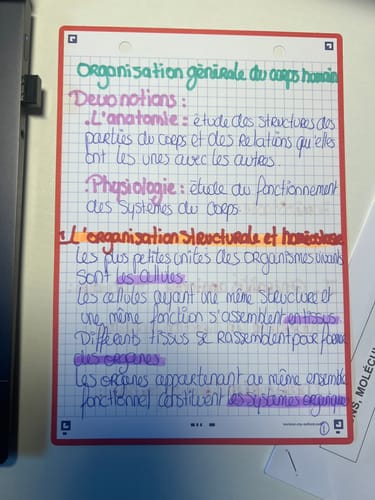 Organisation générale du corps humain
Deux notions :
. L'anatomie : étude des structures des
parties du corps et des Relations qu'elles
ont les unes avec les autres.
. Physiologie : étude du fonctionnement
des systèmes du corps
1. L'organisation structurale et homéostasie
Les plus petites unités des organismes vivants
sont les cellules.
Les cellules ayant une même structure et
une même fonction s'assemblent en tissus
Différents tissus se rassemblent pour former
des organes
Les organes appartenant au même ensemble
fonctionnel constituent les systèmes organiques
1
NS, MOLÉCU